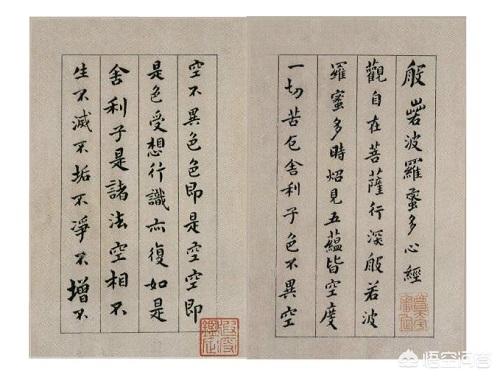 般若波羅蜜多心經
觀自在菩薩行深般若波
羅蜜多時炤見五蘊皆空度
一切苦厄舍利子色不異空
空不異色色即是空空即
是色受想行識亦復如是
舍利子是諸法空相不
生不滅不垢不淨不增不
悟空问答